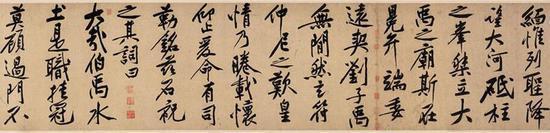 緬惟列聖降
望大河砥柱
之峯桀立大
禹之廟斯在
冕弁端委
遠契劉子禹
無間然玄符
仲尼之歎皇
情乃睠載懷
仰止爰命有司
勒銘茲石祝
之其詞曰
大哉伯禹水
土是職挂冠
莫顧過門不